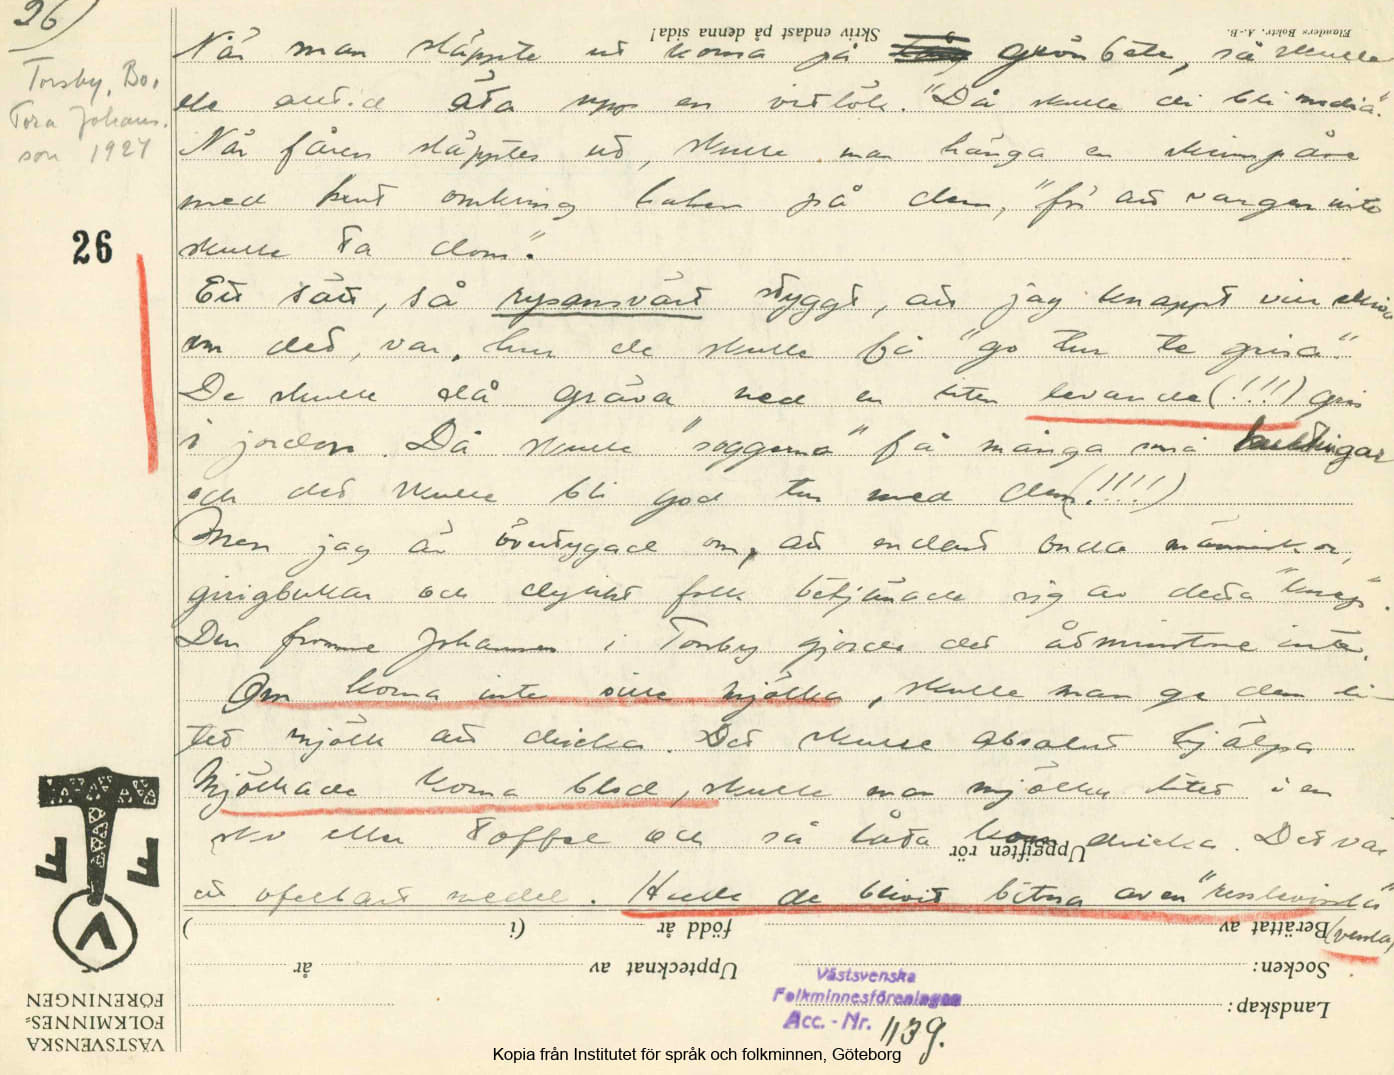 26)
Skriv endast på denna sida!
Elanders Boktr. A.-B.
Torsby, Bo.
Tora Johans.
son 1927
26
När man släppte ut korna på grönbete, så skulle
de alltid äta upp en vitlök. "Då skulle di bli
När fåren släpptes ut, skulle man hänga en
med krut omkring halsen på dem, "för att vargen inte
skulle ta dom."
Ett sätt, så rysansvärt styggt, att jag knappt vill skriva
om det, var, hur de skulle få "go tur te grisa".
De skulle då gräva ned en liten levande (!!!!) gris
i jorden. Då skulle "soggorna" få många små kultingar
och det skulle bli god tur med dem (!!!!)
Men jag är övertygad om, att endast onda människor,
girigbukar och dylikt folk betjänade sig av detta "knep".
Den fromme Johannes i Torsby gjorde det åtminstone inte.
Om korna inte ville mjölka, skulle man ge dem li-
tet mjölk att dricka. Det skulle absolut hjälpa
Mjölkade korna blod, skulle man mjölka litet i en
sko eller toffel och så låta kon dricka. Det var
ett ofelbart medel. Hade de blivit bitna av en
(vessla)
Uppgiften rör
Berättat av
född år
(i
)
Upptecknat av
år
Socken:
Landskap:
Västsvenska
Folkminnesföreningen
Acc. - Nr. 1139.
VÄSTSVENSKA
FOLKMINNES-
FÖRENINGEN
Kopia från Institutet för språk och folkminnen, Göteborg